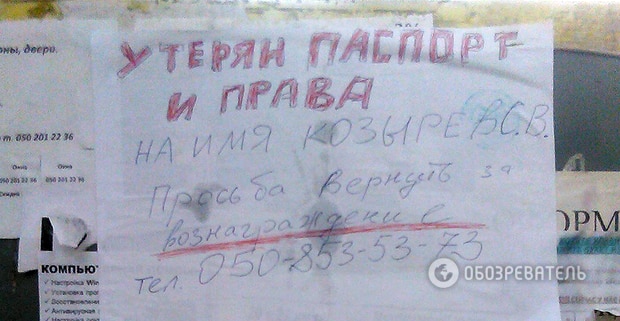 УТЕРЯН ПАСПОРТ
И ПРАВА
НА ИМЯ КОЗЫРЕВ С.В.
Просьба вернуть за
вознаграждение
тел. 050-853-53-73
ны, двери.
т. 050 201 22 36
Окна
Окна
050 201 22 36
050 201 22 36
Скидки
КОМПЬЮТ
Настройка Win
Установка прог
Восстановлени
Антивирусная
Настройка
ОРМ
ОБОЗРЕВАТЕЛЬ